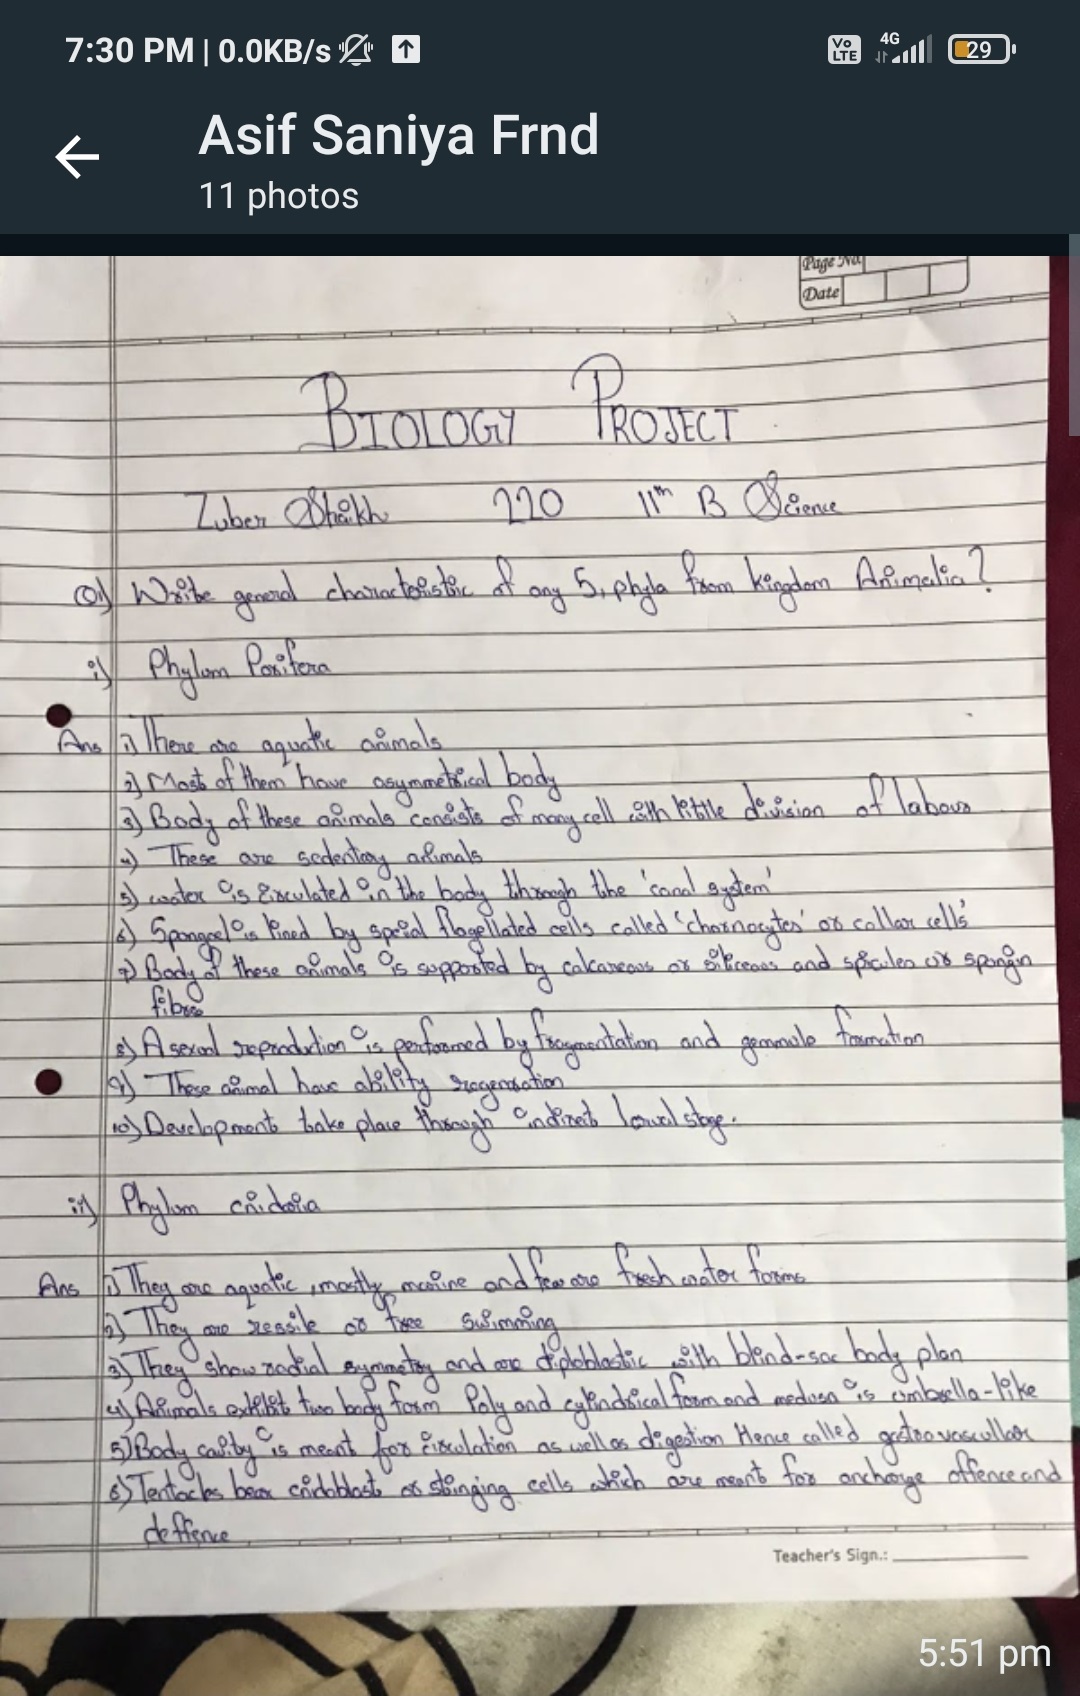 7:30 PM | 0.0KB/s
Vo LTE 4G 29
Asif Saniya Frnd
11 photos
Page No.
Date
BIOLOGY PROJECT
Zuber Shaikh 220 11th B Science
Q1) Write general characteristic of any 5, phyla from kingdom Animalia?
i) Phylum Porifera
Ans 1) There are aquatic animals
2) Most of them have asymmetrical body
3) Body of these animals consists of many cell with little division of labour
4) These are sedentary animals
5) water is circulated in the body through the 'canal system'
6) Spongeel is lined by special flagellated cells called 'choanocytes' or collar cells'
7) Body of these animals is supported by calcareous or siliceous and spicules or spongin
fibres
8) Asexual reproduction is performed by fragmentation and gemmule formation
9) These animal have ability regeneration
10) Development take place through indirect larval stage.
ii) Phylum cnidaria
Ans 1) They are aquatic, mostly marine and few are fresh water forms
2) They are sessile or free swimming
3) They show radial symmetry and are diploblastic with blind-sac body plan
4) Animals exhibit two body form Poly and cylindrical form and medusa is umbrella-like
5) Body cavity is meant for circulation as well as digestion Hence called gastrovascullar
6) Tentacles bear cnidoblast or stinging cells which are meant for anchorge offence and
deffence
Teacher's Sign.:
5:51 pm